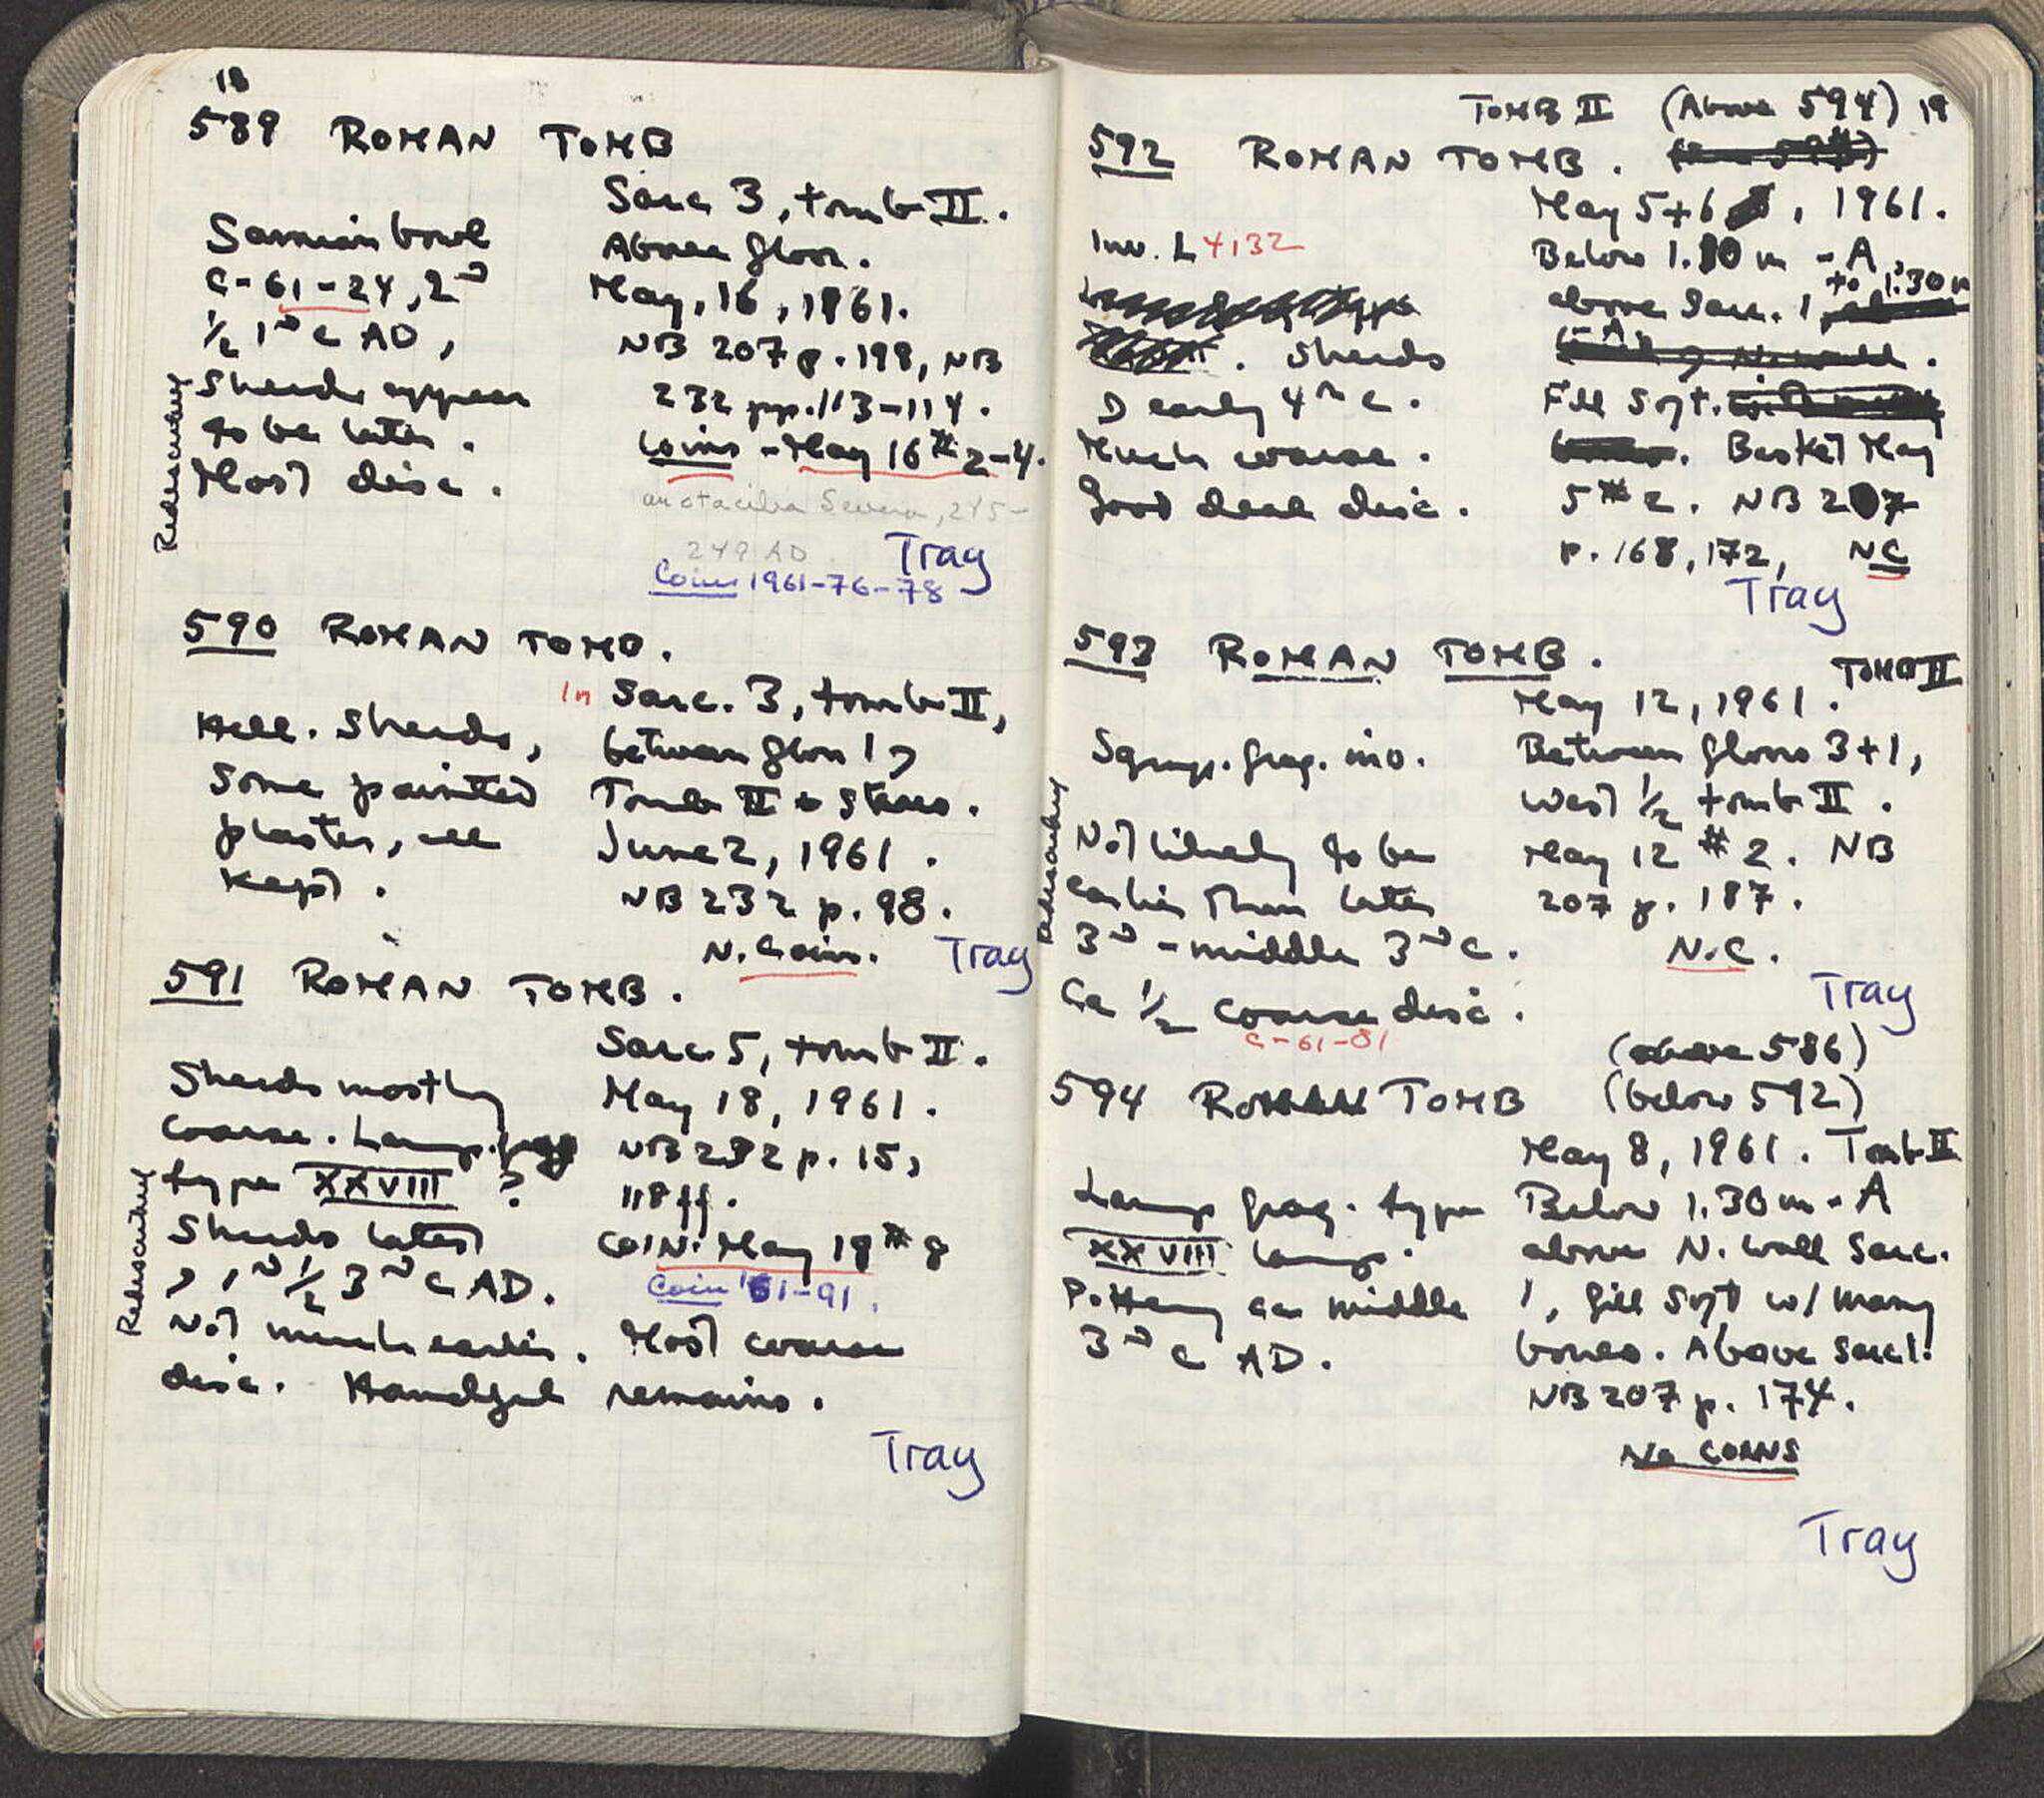 18
589 ROMAN TOMB
Sarc 3, tomb II.
Above floor.
May, 16, 1961.
NB 207 p. 198, NB
232 pp. 113-114.
Coins - May 16 # 2-4.
otacilia Severa, 245-
249 AD
Tray
Coins 1961-76-78
Samian bowl
C-61-24, 2D
1/2 1D C AD,
Sherds appear
to be later.
Most disc.
Redescribed
590 ROMAN TOMB.
In Sarc. 3, tomb II,
between floor 1 &
Tomb II & Stereo.
June 2, 1961.
NB 232 p. 98.
N. Coin.
Tray
Hell. Sherds,
Some painted
plaster, all
Kept.
591 ROMAN TOMB.
Sarc 5, tomb II.
May 18, 1961.
NB 232 p. 15,
118 ff.
COIN. May 18 # 8
Coin '61-91.
Sherds mostly
coarse. Lamp
type XXVIII ?
Sherds latest
1D 1/2 3D C AD.
Not much earlier. Most coarse
disc. Handful remains.
Redescribed
Tray
19
TOMB II (Above 594)
592 ROMAN TOMB.
May 5+6, 1961.
Below 1.10 m - A
to 1.30 m
above Sarc. 1
-A.
Fill Soft.
Basket May
5 # 2. NB 207
p. 168, 172, NC
Tray
Inv. L 4132
Sherds
early 4th c.
Much coarse.
Good deal disc.
593 ROMAN TOMB.
TOMB II
May 12, 1961.
Between floors 3+1,
West 1/2 tomb II.
May 12 # 2. NB
207 p. 187.
N.C.
Tray
frag. ino.
Not likely to be
earlier than later
3D - middle 3D C.
Ca 1/2 coarse disc.
C-61-81
Redescribed
594 ROMAN TOMB
(above 586)
(below 592)
May 8, 1961. Tomb II
Below 1.30 m - A
above N. wall Sarc.
1, fill soft w/ many
bones. Above Sarc 1.
NB 207 p. 174.
No COINS
Lamp frag. type
XXVIII Lamp.
Pottery ca middle
3D C AD.
Tray